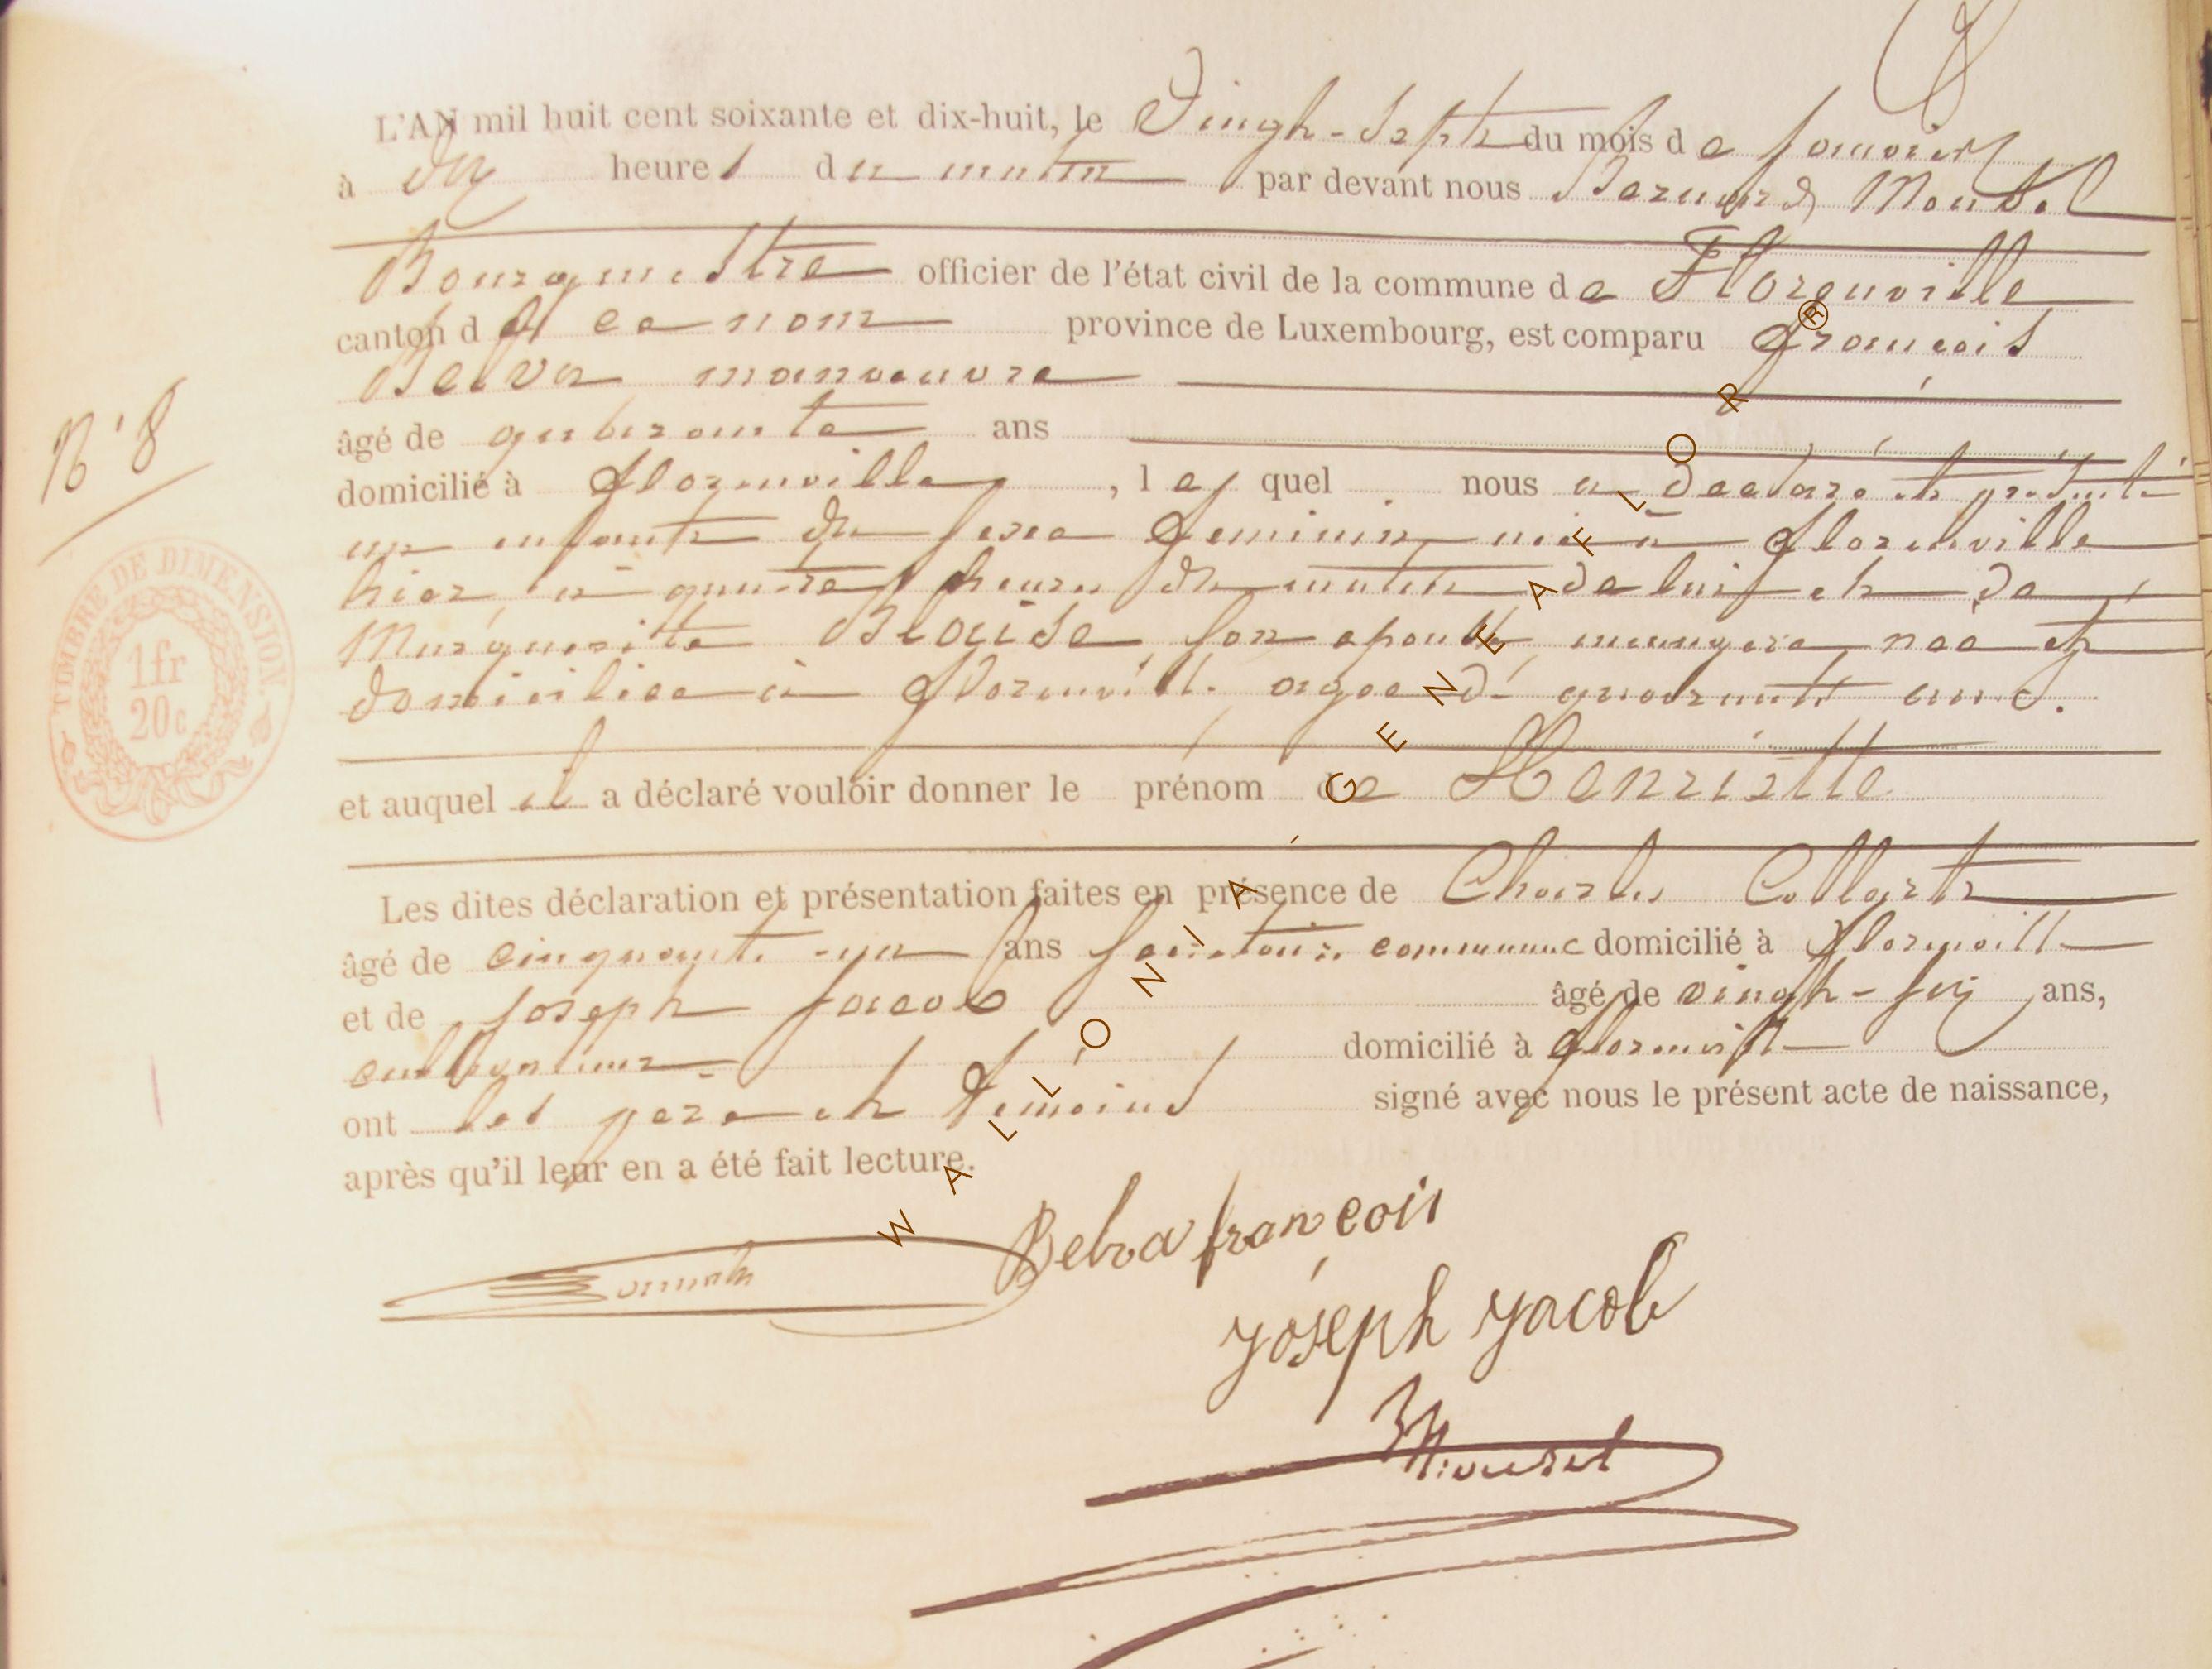 L'AN mil huit cent soixante et dix-huit, le Vingt-Sept du mois de janvier
à dix heures du matin par devant nous Bernard Mousel
Bourgmestre officier de l'état civil de la commune de Florenville
canton d de ce nom province de Luxembourg, est comparu François
Belva manoeuvre
âgé de quarante ans
N° 8
domicilié à florenville, lequel nous a déclaré et présenté
un enfant du sexe feminin né à florenville
hier, à quatre heures du matin de lui et de
Marguerite Blaise son epouse menagere nee et
domiciliee à florenville agee de quarante ans.
TIMBRE DE DIMENSION.
1 fr
20 c
et auquel il a déclaré vouloir donner le prénom de Henriette
Les dites déclaration et présentation faites en présence de Charles Collart
âgé de cinquante-un ans secrétaire communal domicilié à florenville
et de joseph jacob âgé de vingt-six ans,
domicilié à florenville
ont les père et temoins signé avec nous le présent acte de naissance,
après qu'il leur en a été fait lecture.
Belva françois
joseph jacob
Mousel
WALLONIA - GENEAFLOR ®